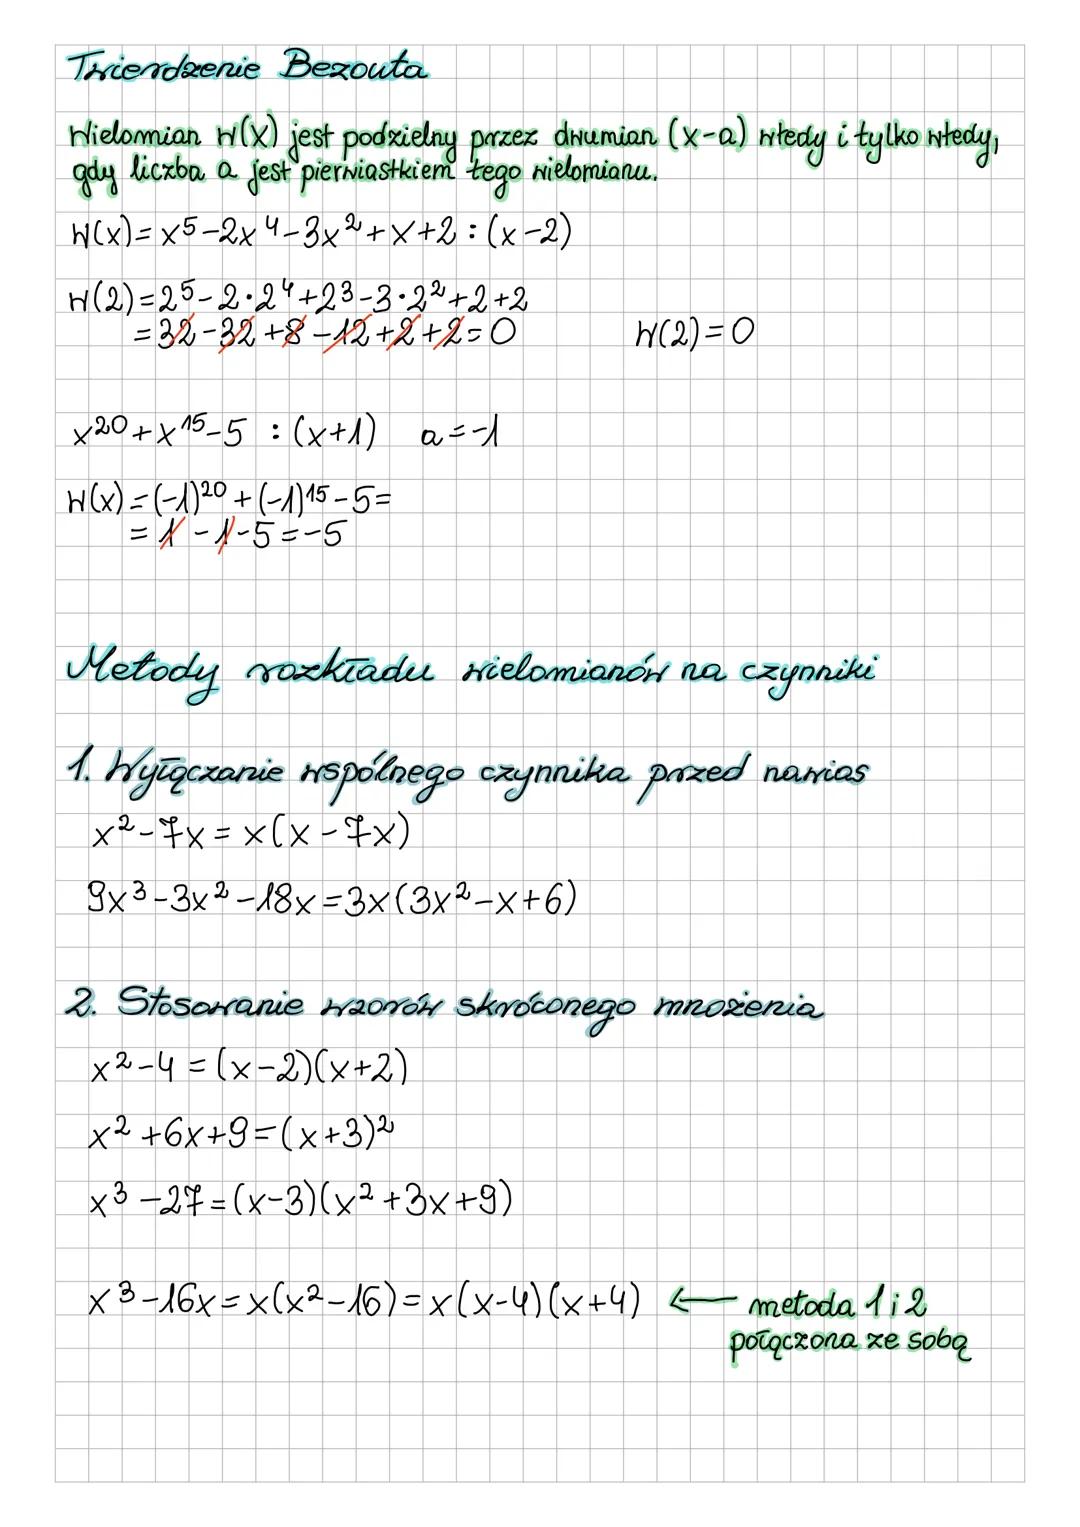 Twierdzenie Bezouta
Wielomian W(x) jest podzielny przez dwumian (x-a) wtedy i tylko wtedy,
gdy liczba a jest pierwiastkiem tego wielomianu.
W(x)= x⁵-2x⁴-3x²+x+2 : (x-2)
W(2)=2⁵-2·2⁴+2³-3·2²+2+2
=32-32+8-12+2+2=0 W(2)=0
x²⁰+x¹⁵-5 : (x+1) a=-1
W(x)=(-1)²⁰+(-1)¹⁵-5=
= 1-1-5=-5
Metody rozkładu wielomianów na czynniki
1. Wyłączanie wspólnego czynnika przed nawias
x²-7x=x(x-7x)
9x³-3x²-18x=3x(3x²-x+6)
2. Stosowanie wzorów skróconego mnożenia
x²-4=(x-2)(x+2)
x²+6x+9=(x+3)²
x³-27=(x-3)(x²+3x+9)
x³-16x=x(x²-16)=x(x-4)(x+4) ← metoda 1 i 2
połączona ze sobą